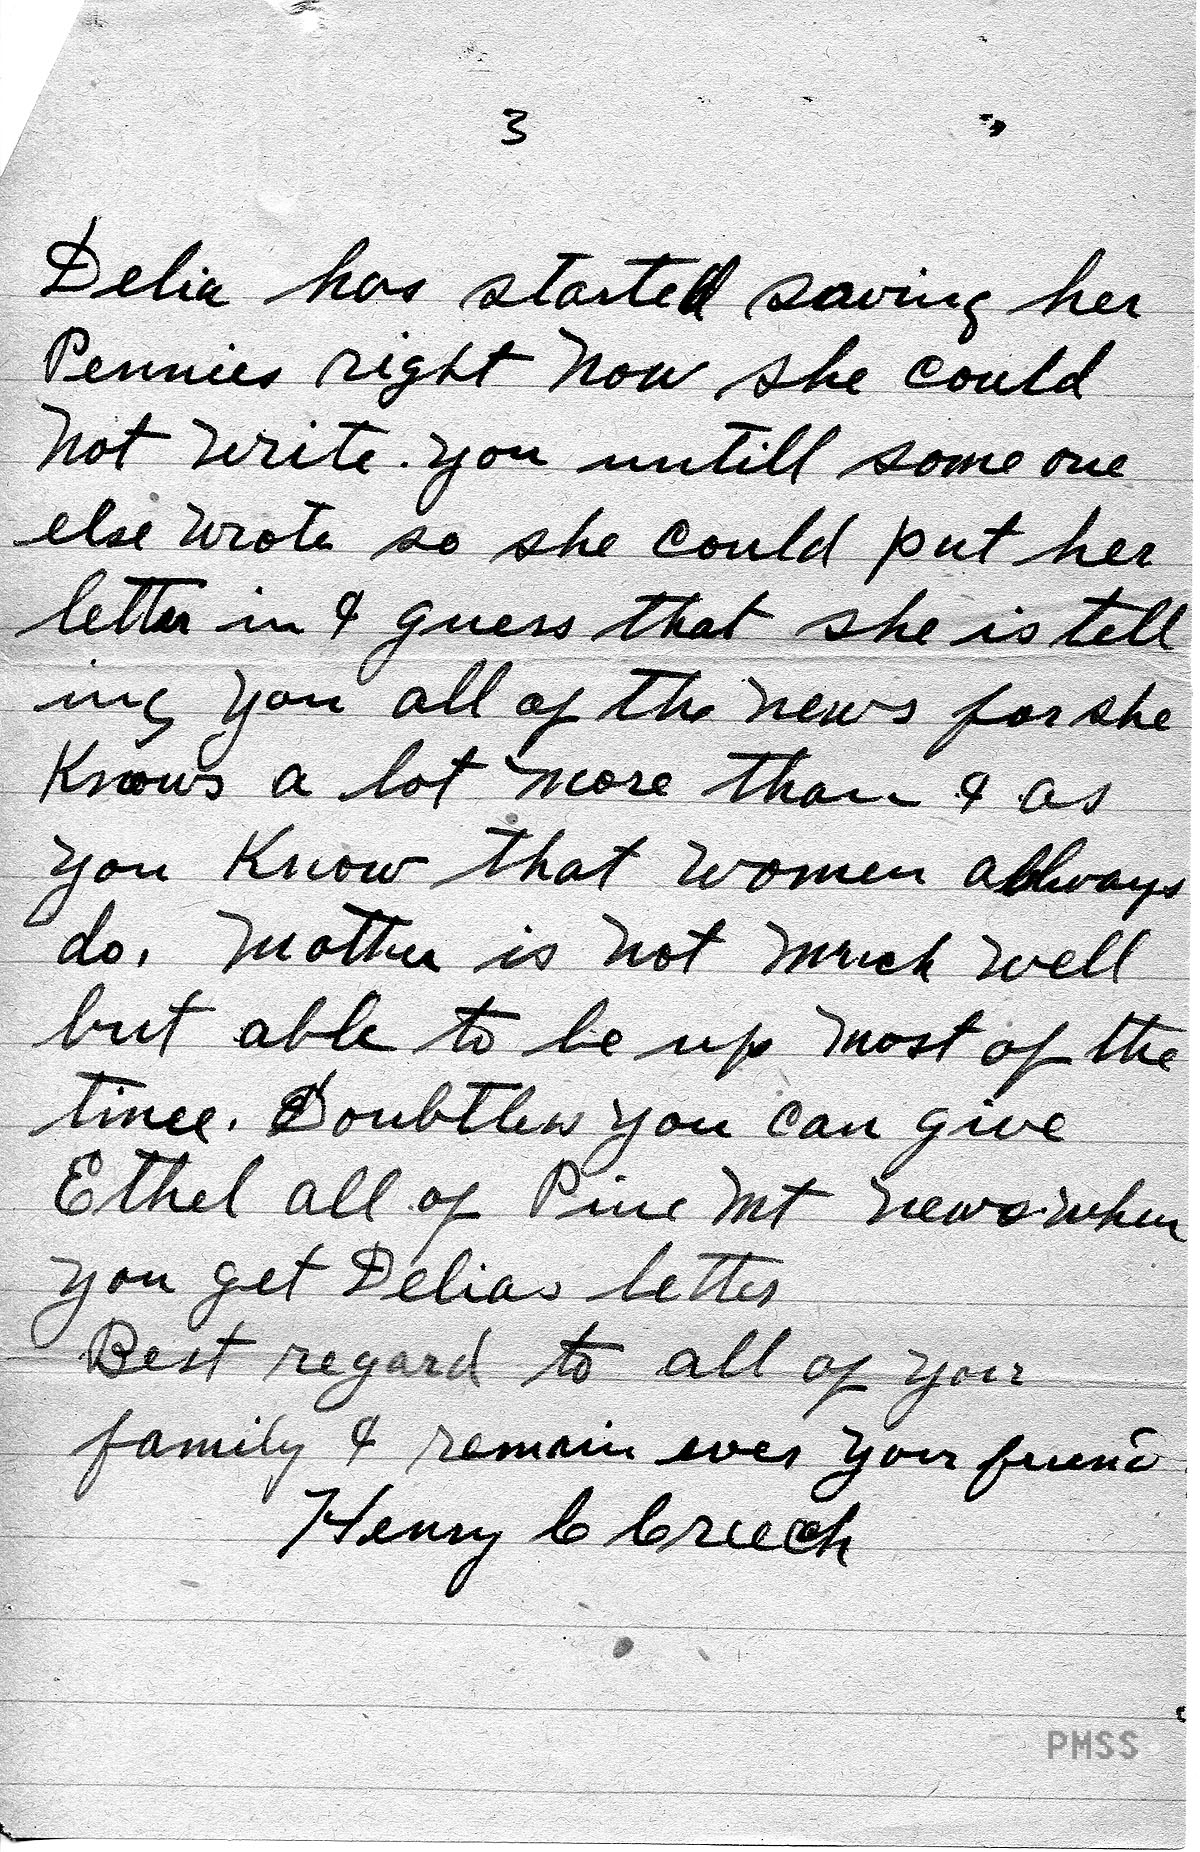 3
Delia has started saving her
Pennies right now she could
not write. you untill some one
else wrote so she could put her
letter in & guess that she is tell
ing you all of the news for she
Knows a lot more than & as
you Know that women allways
do. Mother is not much well
but able to be up most of the
time. Doubtless you can give
Ethel all of Pine Mt news when
you get Delias letter
Best regard to all of your
family & remain ever your friend
Henry C Creech
PMSS